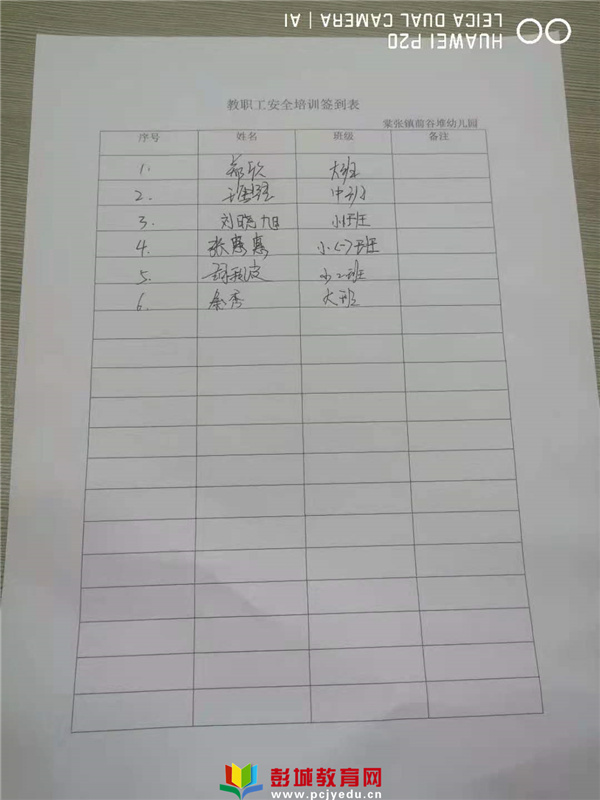 HUAWEI P20
LEICA DUAL CAMERA | AI
教职工安全培训签到表
棠张镇前谷堆幼儿园
序号 姓名 班级 备注
1. 大班
2. 中班
3. 刘晓旭 小班
4. 张惠惠 小(一)班
5. 小二班
6. 秀 大班
彭城教育网
www.pcjyedu.cn